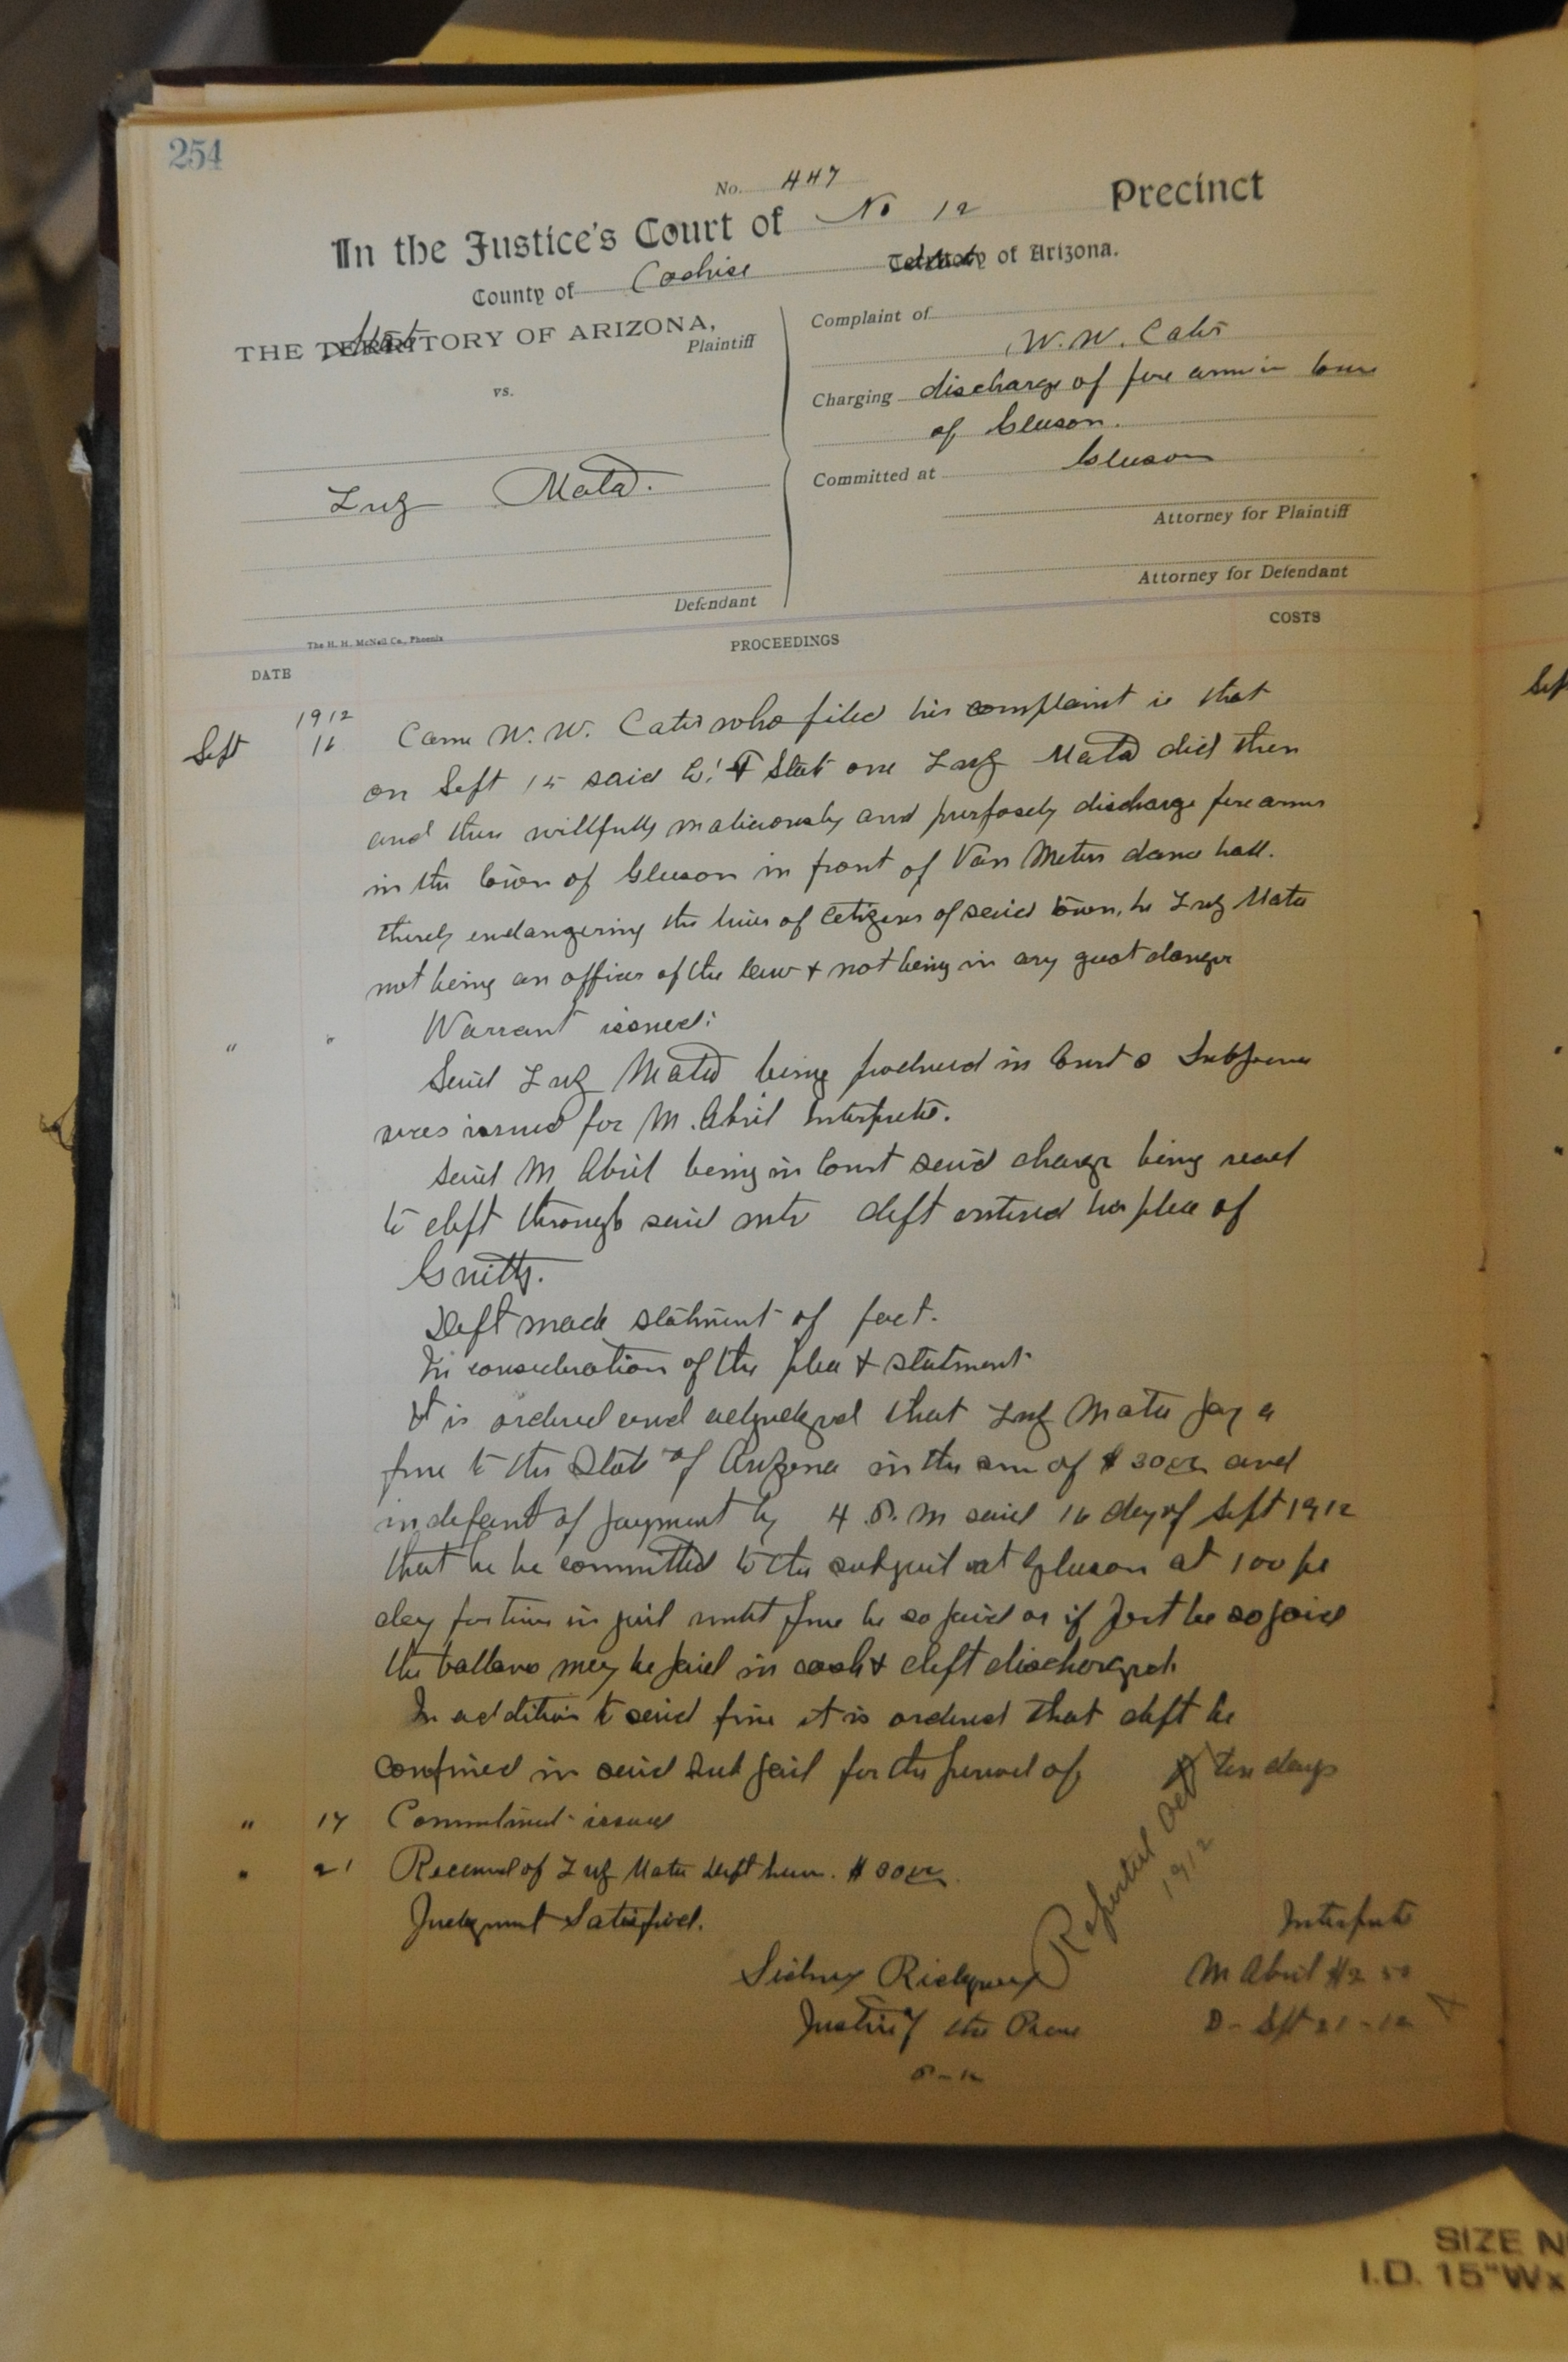 254
No. 447
In the Justice's Court of No 12 Precinct
County of Cochise State of Arizona.
THE State OF ARIZONA,
Plaintiff
vs.
Luz Mata.
Defendant
Complaint of
W. W. Cates
Charging discharge of fire arms in town
of Gleeson.
Committed at Gleeson
Attorney for Plaintiff
Attorney for Defendant
The H. H. McNeil Co., Phoenix
DATE PROCEEDINGS COSTS
1912
Sept 16 Came W. W. Cates who filed his complaint is that
on Sept 15 said Co. & State one Luz Mata did then
and there willfully maliciously and purposely discharge fire arms
in the town of Gleeson in front of Van Meters dance hall.
thereby endangering the lives of Citizens of said town, he Luz Mata
not being an officer of the law & not being in any great danger
" " Warrant issued:
Said Luz Mata being produced in Court a Subpoena
was issued for M. Abril Interpreter.
Said M Abril being in Court said charge being read
to deft through said intr deft entered his plea of
Guilty.
Deft made statment of fact.
In consideration of the plea & statment
It is ordered and adjudged that Luz Mata pay a
fine to the State of Arizona in the sum of $30.00 and
in default of payment by 4 P.M said 16 day of Sept 1912
that he be committed to the subjail at Gleeson at 1 00 per
day for time in jail until fine be so paid or if part be so paid
the ballanc may be paid in cash & deft discharged.
In addition to said fine it is ordered that deft be
confined in said Sub jail for the period of ten days
" 17 Commitment issued
" 21 Received of Luz Mata deft herein. $30.00
Judgment Satisfied.
Reported Oct
1912
Sidney Ridgway
Justice of the Peace
P-12
Interpreter
M Abril $2 50
D- Sept 21-12
Sept
SIZE N
I.D. 15"Wx